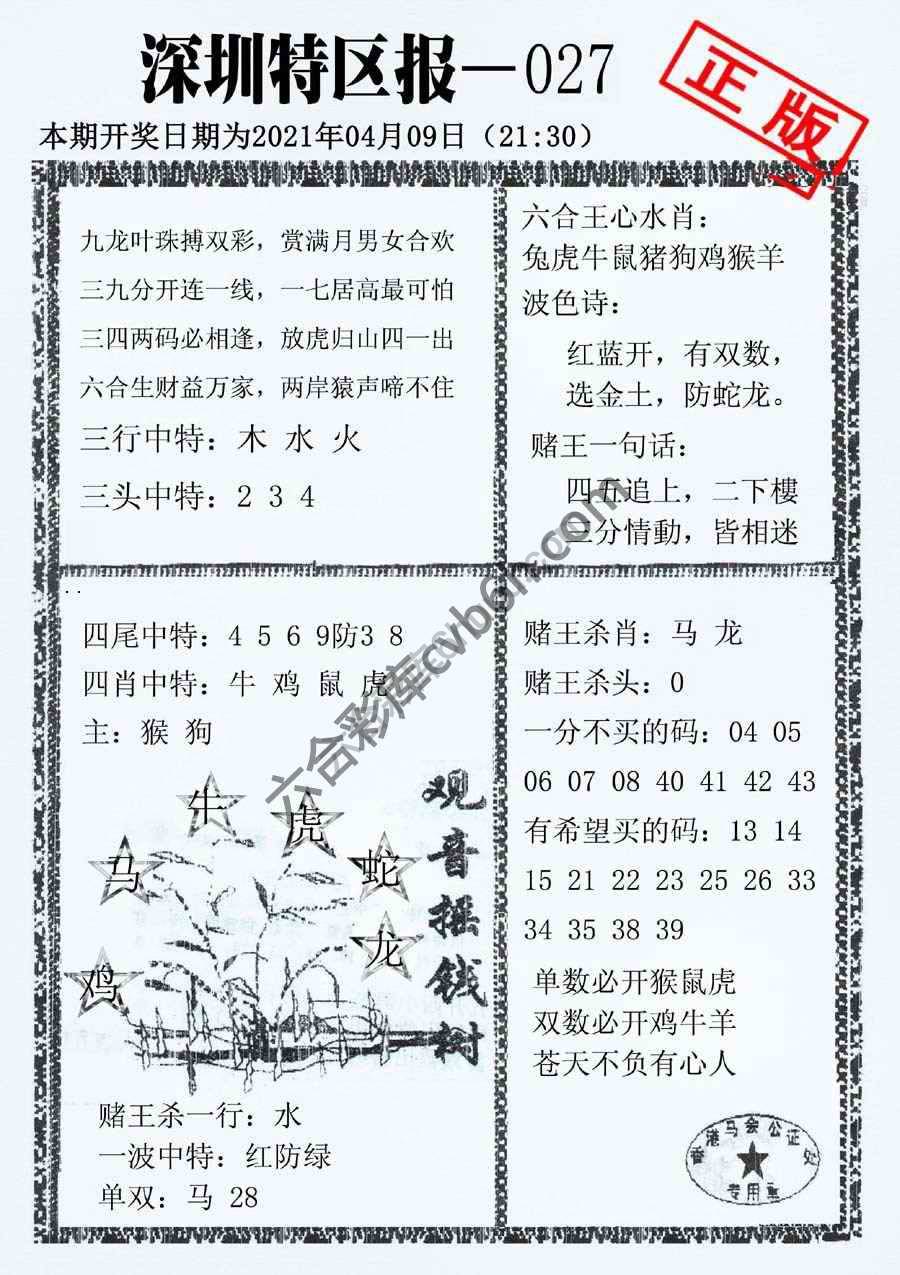 深圳特区报—027
正版
本期开奖日期为2021年04月09日（21:30）
九龙叶珠搏双彩，赏满月男女合欢
三九分开连一线，一七居高最可怕
三四两码必相逢，放虎归山四一出
六合生财益万家，两岸猿声啼不住
三行中特：木 水 火
三头中特：2 3 4
六合王心水肖：
兔虎牛鼠猪狗鸡猴羊
波色诗：
红蓝开，有双数，
选金土，防蛇龙。
赌王一句话：
四五追上，二下樓
三分情動，皆相迷
四尾中特：4 5 6 9防3 8
四肖中特：牛 鸡 鼠 虎
主：猴 狗
牛
虎
马
蛇
龙
鸡
观音摇钱树
赌王杀一行：水
一波中特：红防绿
单双：马 28
赌王杀肖：马 龙
赌王杀头：0
一分不买的码：04 05
06 07 08 40 41 42 43
有希望买的码：13 14
15 21 22 23 25 26 33
34 35 38 39
单数必开猴鼠虎
双数必开鸡牛羊
苍天不负有心人
香港马会公证处
专用章
六合彩库cvb6h.com